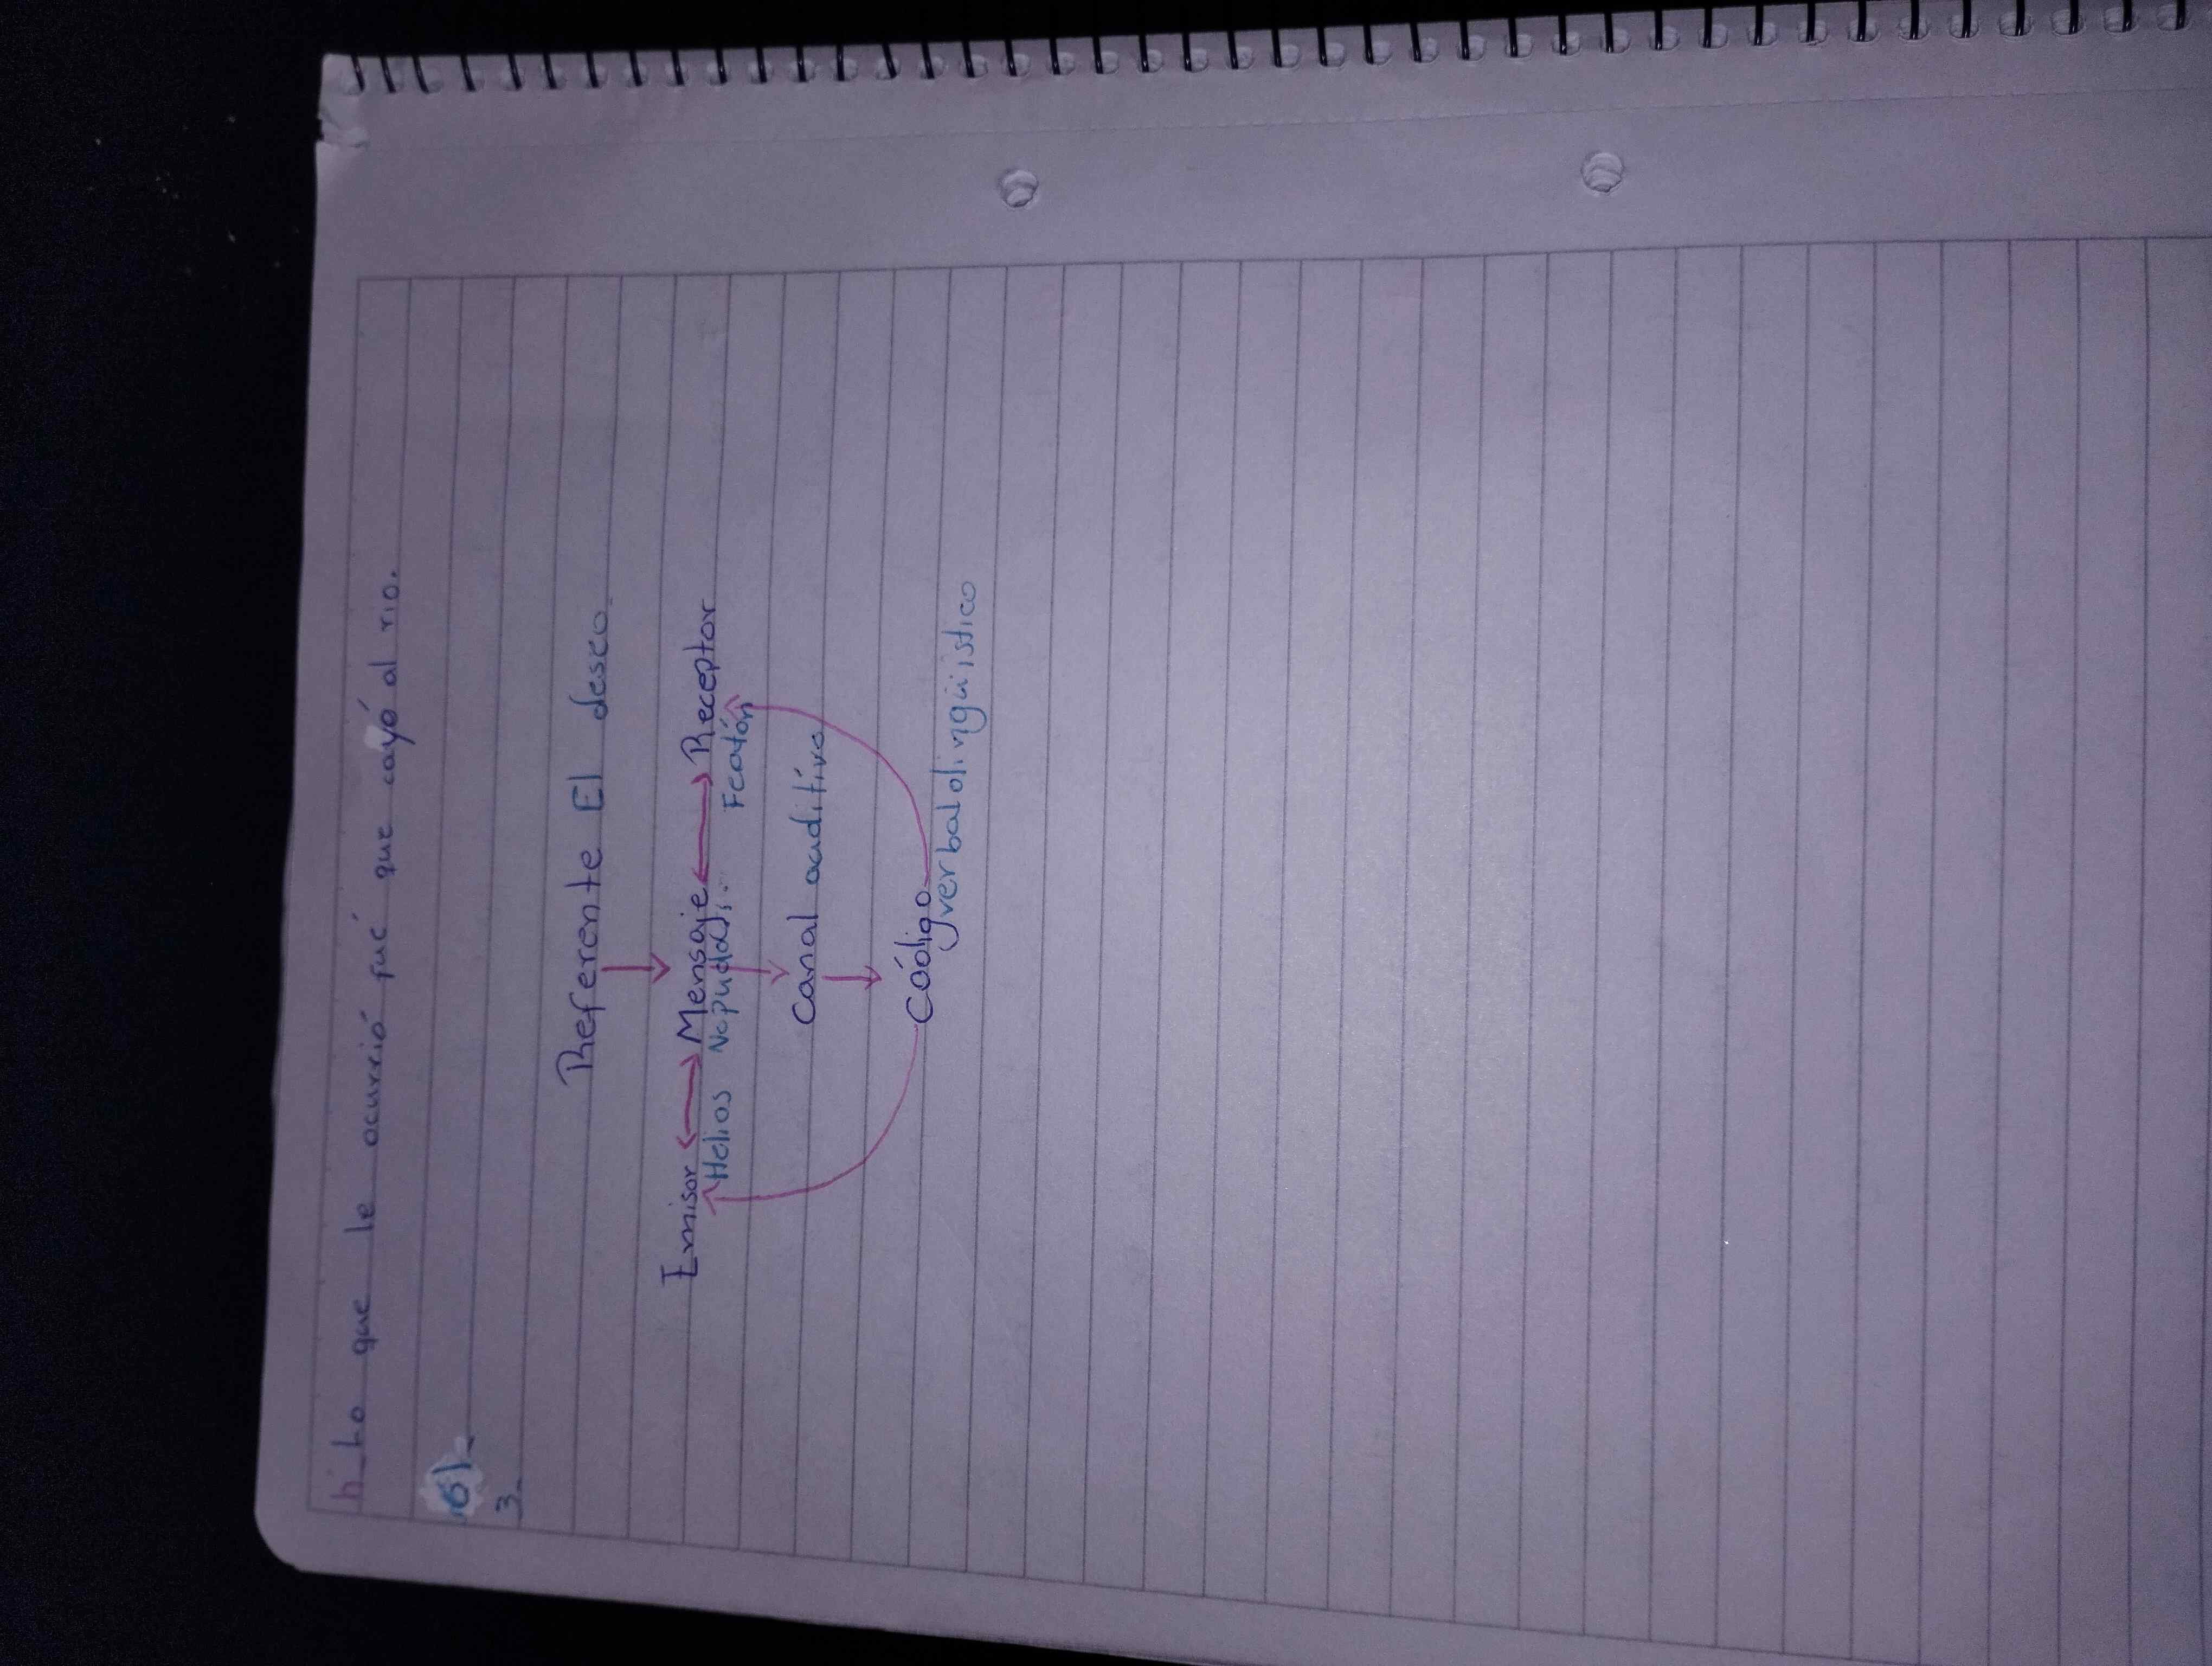 h_ Lo que le ocurrió fué que cayó al rio.
6)_
3_
Referente El deseo.
Emisor Mensaje Receptor
Helios Featón
Canal auditivo
Código
verbal olingüistico